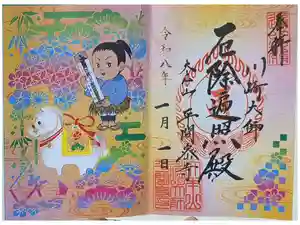 奉拝
川崎大師
厄除遍照殿
大本山平間寺
令和八年
一月一日